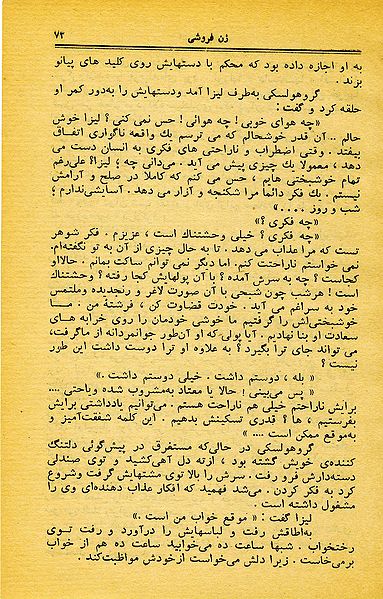 زن فروشی
۷۳
به او اجازه داده بود که محکم با دستهایش روی کلید های پیانو
بزند .
گروهولسکی به‌طرف لیزا آمد ودستهایش را به‌دور کمر او
حلقه کرد و گفت :
« چه هوای خوبی ! چه هوائی ! حس نمی کنی ؟ لیزا خوش
حالم ... آن قدر خوشحالم که می ترسم یك واقعه ناگواری اتفاق
بیفتد . وقتی اضطراب و ناراحتی های فکری به انسان دست می
دهد ، معمولا یك چیزی پیش می آید . می‌دانی چه ؛ لیزا؟ علی‌رغم
تمام خوشبختی هایم ، حس می کنم که کاملا در صلح و آرامش
نیستم . یك فکر دائماً مرا شکنجه و آزار می دهد . آسایشی‌ندارم ؛
شب و روز .... »
« چه فکری ؟ »
« چه فکری ؟ خیلی وحشتناك است ، عزیزم . فکر شوهر
تست که مرا عذاب می دهد . تا به حال چیزی از آن به تو نگفته‌ام.
نمی خواستم ناراحتت کنم. اما دیگر نمی توانم ساکت بمانم . حالااو
کجاست ؟ چه به سرش آمده ؟ با آن پولهایش کجا رفته ؟ وحشتناك
است ! هرشب چون شبحی با آن صورت لاغر و رنجدیده وملتمس
خود به سراغم می آید . خودت قضاوت کن ، فرشتهٔ من . مـا
خوشبختی‌اش را گرفتیم ما خوشی خودمان را روی خرابه های
سعادت او بنا نهادیم . آیا پولی که او آن‌طور جوانمردانه از ماگرفت،
می تواند جای ترا بگیرد ؟ به علاوه او ترا دوست داشت این طور
نیست ؟
« بله ، دوستم داشت . خیلی دوستم داشت .»
« پس می‌بینی ! حالا یا معتاد به‌مشروب شده ویاحتی ....
برایش ناراحتم خیلی هم ناراحت هستم . می‌توانیم یادداشتی برایش
بفرستیم ، ها ؟ قدری تسکینش بدهیم . این کلمه شفقت‌آمیز و
به‌موقع ممکن است .... »
گروهولسکی در حالی‌که مستغرق در پیش‌گوئی دلتنگ
کننده‌ی خویش گشته بود ، ازته دل آهی‌کشید و توی صندلی
دسته‌دارش فرو رفت . سرش را بالا توی مشتهایش گرفت وشروع
کرد به فکر کردن . می‌شد فهمید که افکار عذاب دهنده‌ای وی را
مشغول داشته است .
لیزا گفت : « موقع خواب من است .»
به‌اطاقش رفت و لباسهایش را درآورد و رفت تـوی
رختخواب . شبها ساعت ده می‌خوابید ساعت ده هم از خواب
برمی‌خاست . زیرا دلش می‌خواست ازخودش مواظبت‌کند .